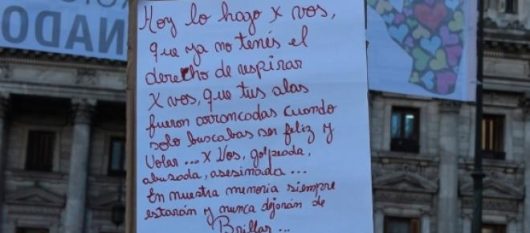 NADO
Hoy lo hago x vos,
que ya no tenés el
derecho de respirar
X vos, que tus alas
fueron arrancadas cuando
solo buscabas ser feliz y
Volar... x Vos, golpeada,
abusada, asesinada...
En nuestra memoria siempre
estarán y nunca dejarán de
Brillar...